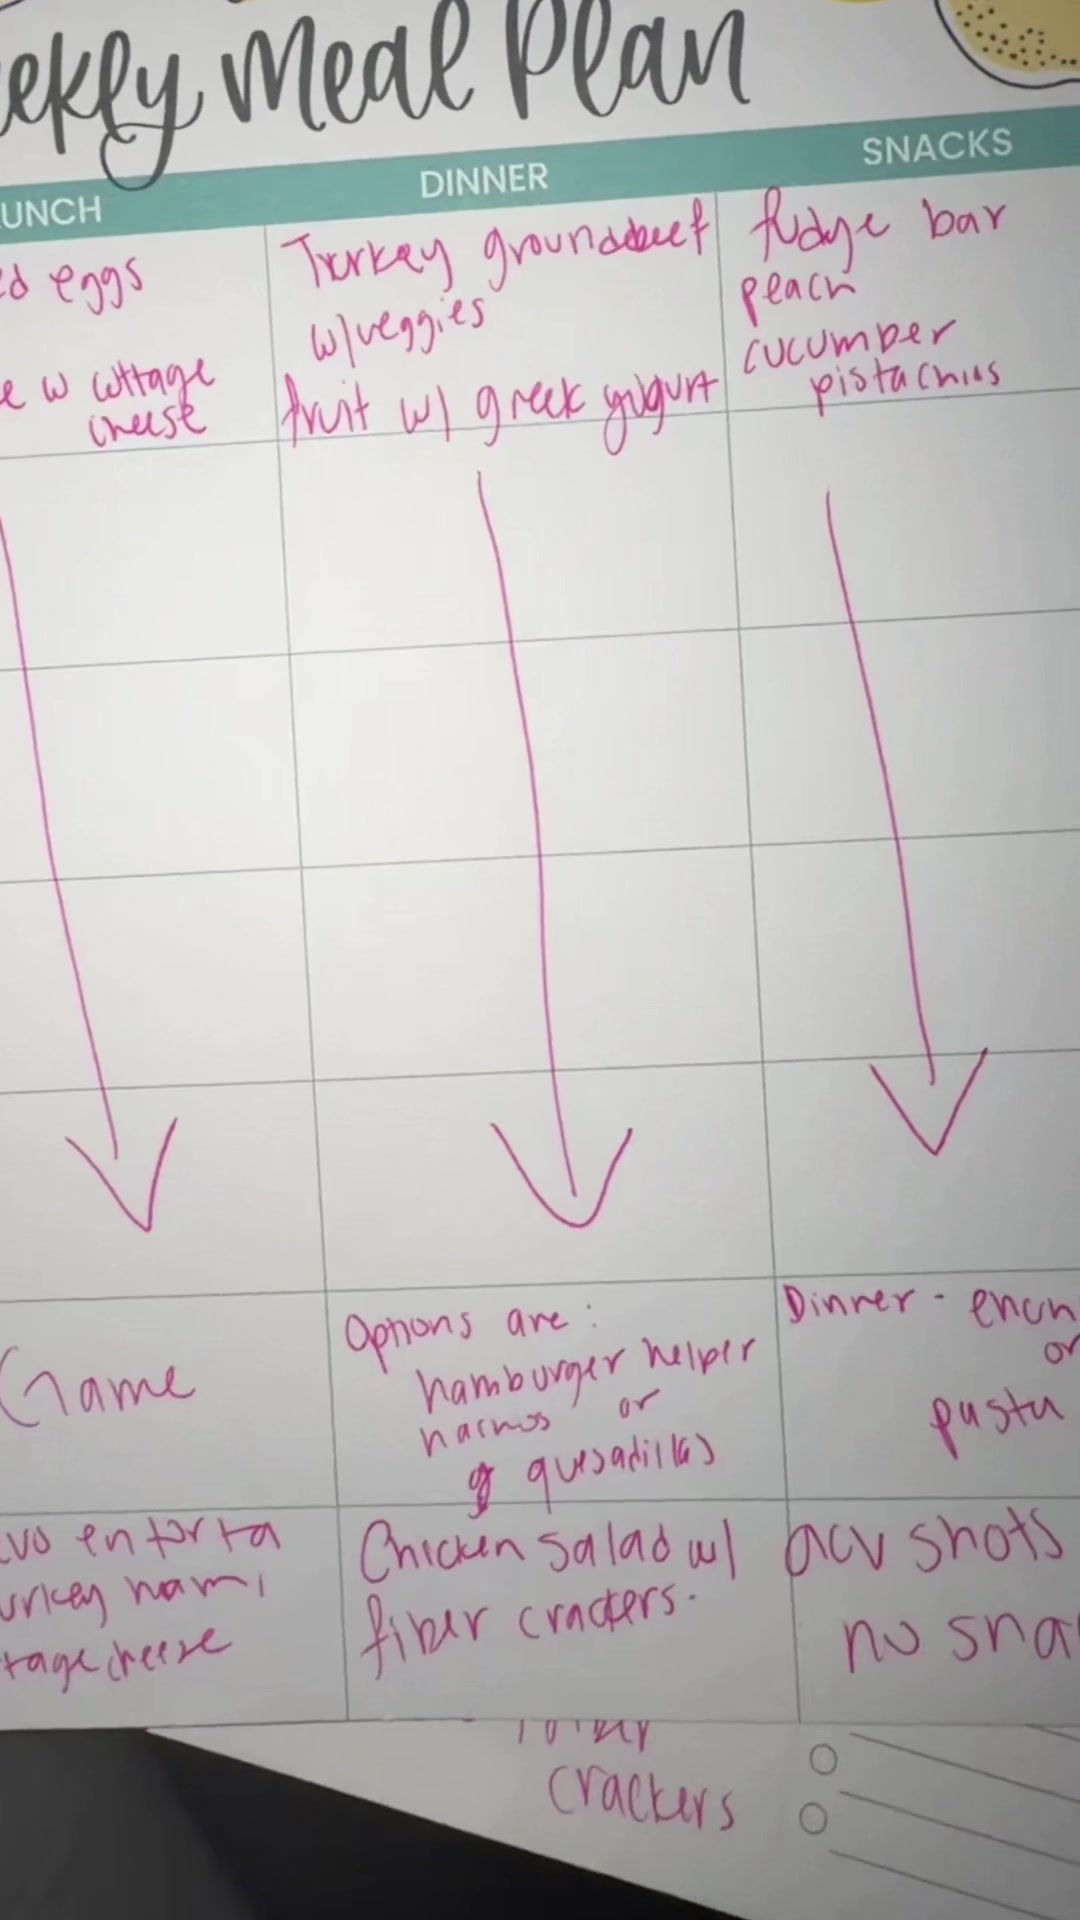 ekly Meal Plan
UNCH
DINNER
SNACKS
ed eggs
e w cottage
cheese
Turkey groundbeef
w/veggies
fruit w/ greek yogurt
fudge bar
peach
cucumber
pistachios
Game
Options are:
hamburger helper
nachos or
quesadillas
Dinner - ench
or
pasta
evo en torta
urkey ham
tage cheese
Chicken Salad w/
fiber crackers.
acv shots
no sna
crackers